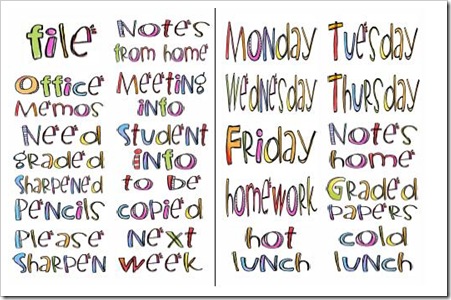 file
Notes
from home
Office
Memos
Meeting
info
Need
graded
Student
info
Sharpened
Pencils
to be
copied
Please
Sharpen
Next
week
Monday
Tuesday
Wednesday
Thursday
Friday
Notes
home
homework
Graded
Papers
hot
lunch
cold
lunch